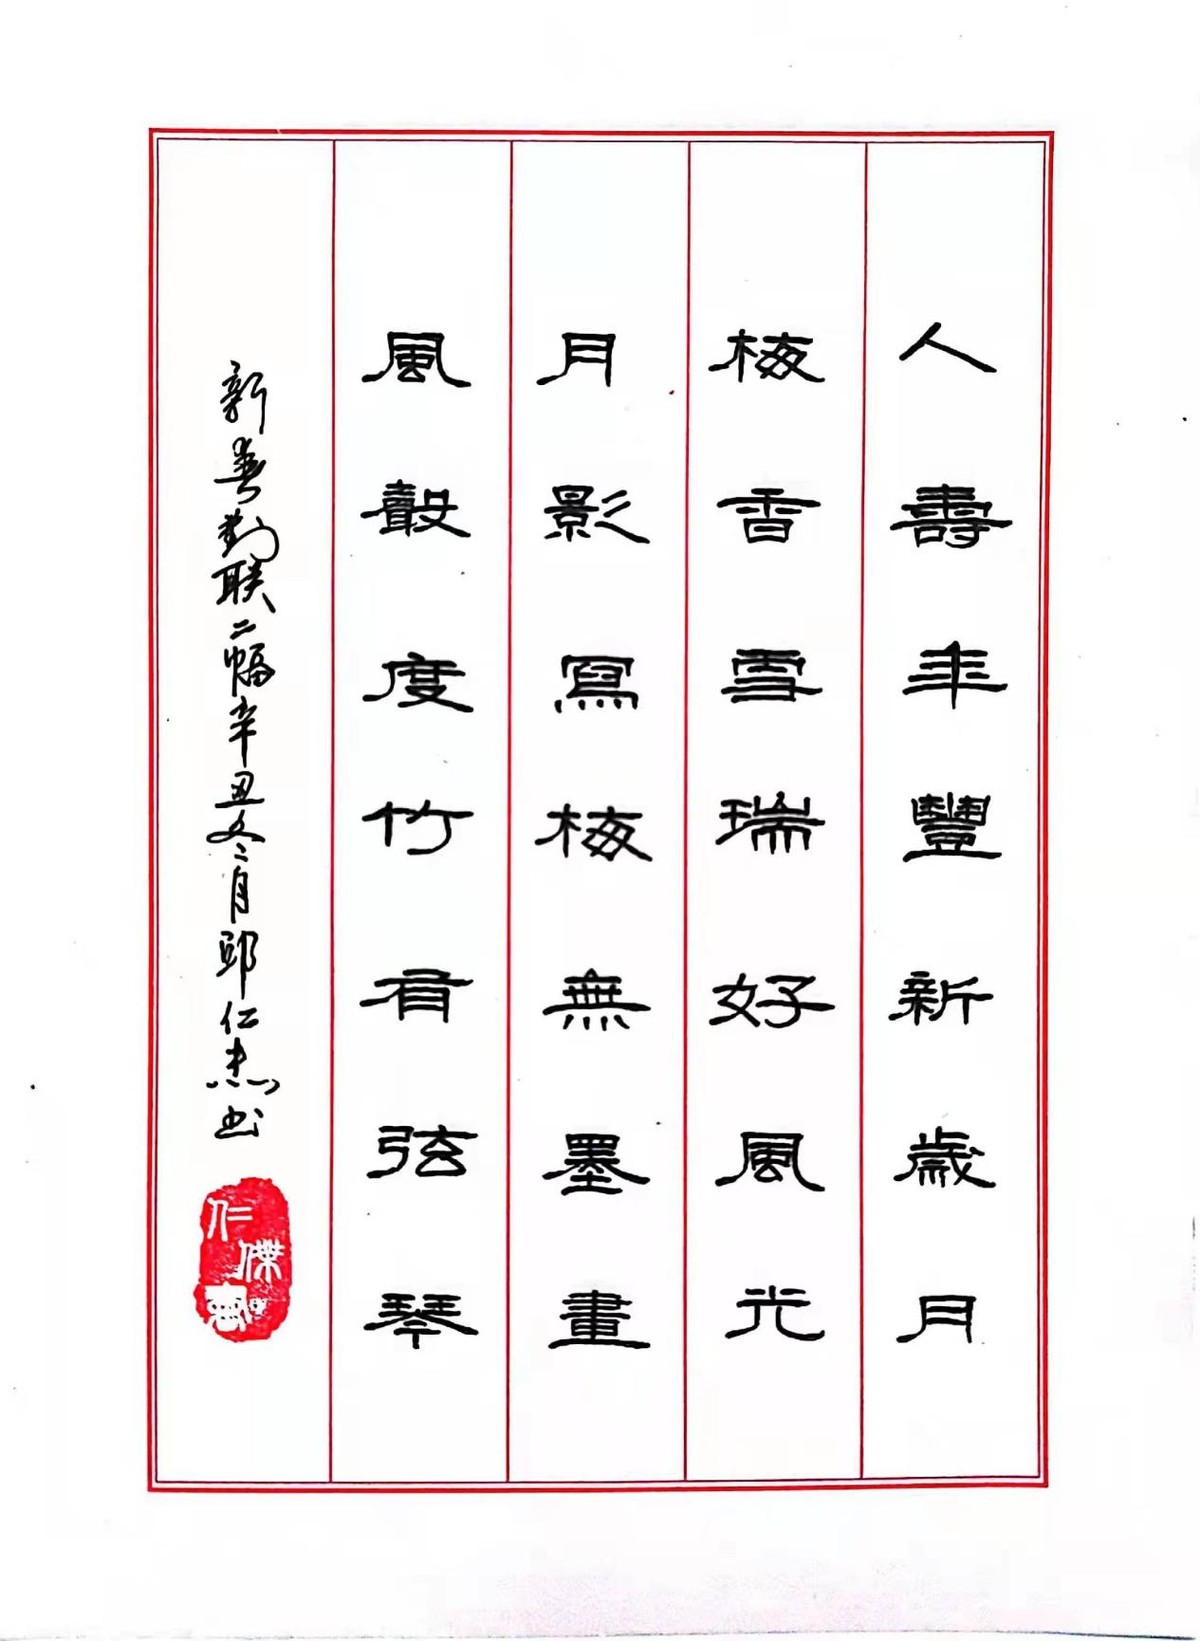 人壽年豐新歲月
梅香雪瑞好風光
月影寫梅無墨畫
風聲度竹有弦琴
新春對联二幅辛丑冬月邱仁杰书
仁傑